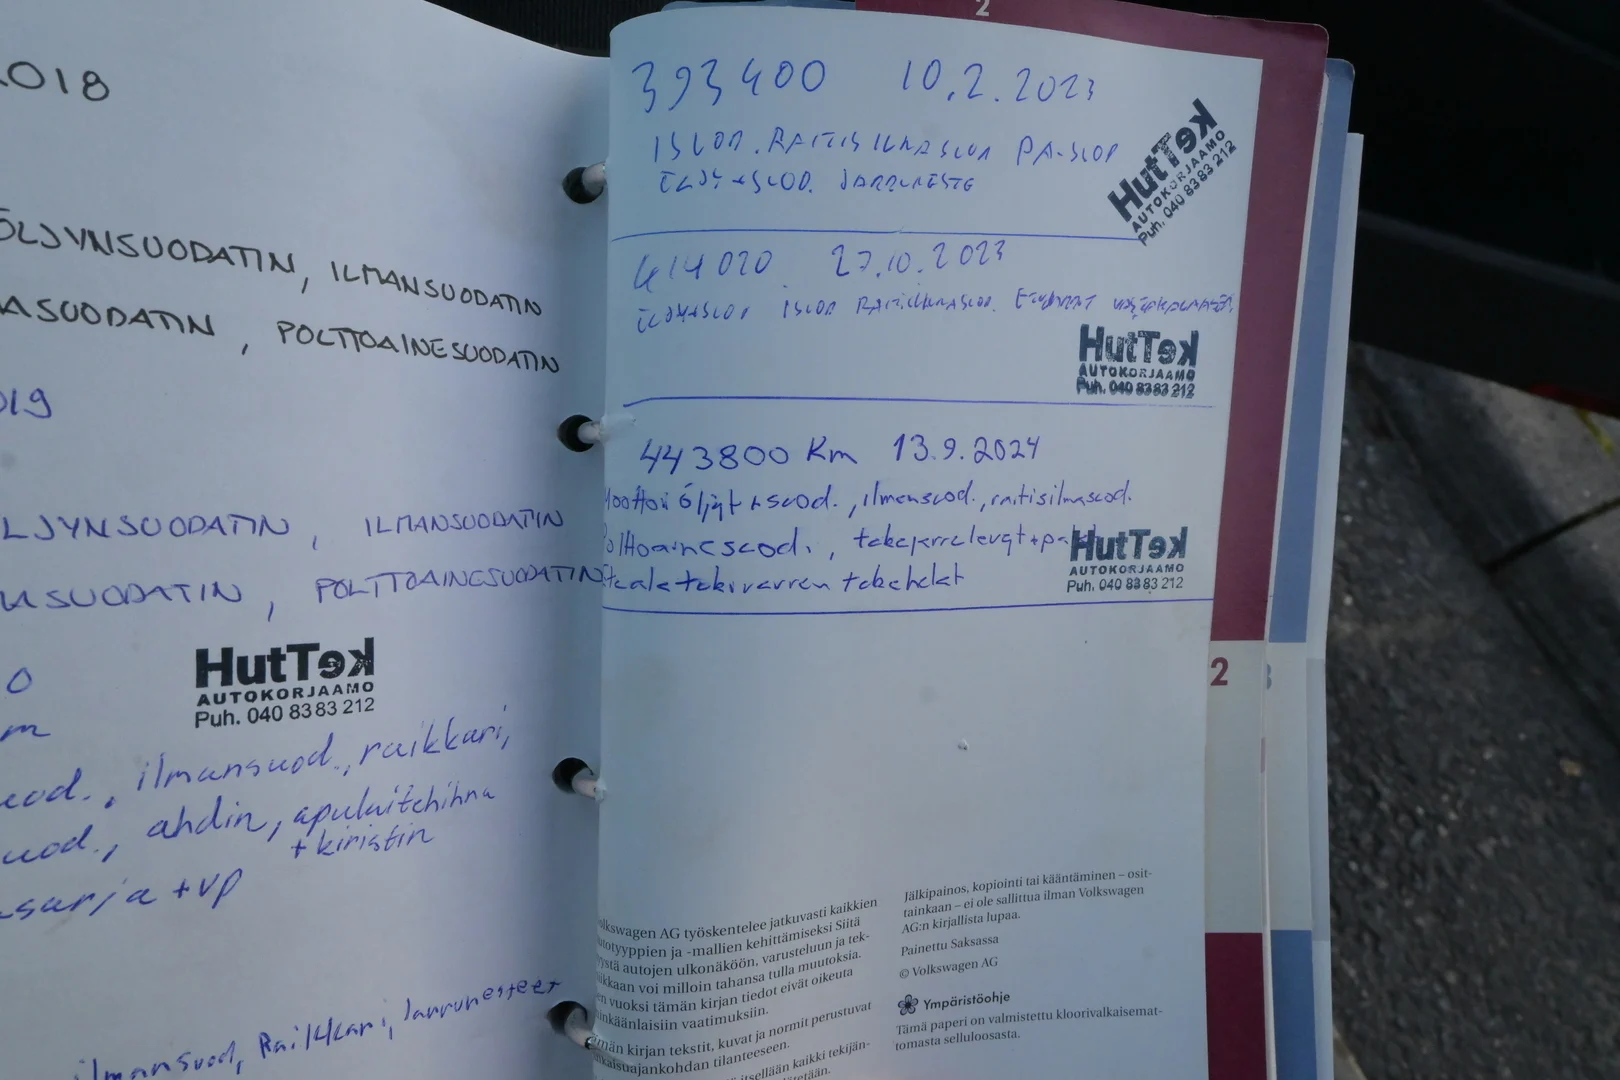 2018
ÖLJYNSUODATIN, ILMANSUODATIN
ASUODATIN, POLTTOAINESUODATIN
019
LJYNSUODATIN, ILMANSUODATIN
SUODATIN, POLTTOAINESUODATIN
0
m
HutTek
AUTOKORJAAMO
Puh. 040 8383 212
uod., ilmansuod., raikkari,
uod., ahdin, apulaitehihna
+ kiristin
sarja + vp
ilmansuod, Raikkari, Jarrunesteet
2
393400 10.2.2023
ISUOD. RAITISILMASUOD PA-SUOD
ÖLJY+SUOD. JARRUNESTE
HutTek
AUTOKORJAAMO
Puh. 040 8383 212
414020 27.10.2023
ÖLJY+SUOD ISUOD RAITISILMASUOD.
HutTek
AUTOKORJAAMO
Puh. 040 8383 212
443800 Km 13.9.2024
Moottori öljyt + suod., ilmansuod., raitisilmasuod.
Polttoainesuod., takajarrulevyt + pa
HutTek
AUTOKORJAAMO
Puh. 040 8383 212
2
olkswagen AG työskentelee jatkuvasti kaikkien
utotyyppien ja -mallien kehittämiseksi Siitä
ystä autojen ulkonäköön, varusteluun ja tek-
ikkaan voi milloin tahansa tulla muutoksia.
en vuoksi tämän kirjan tiedot eivät oikeuta
inkäänlaisiin vaatimuksiin.
män kirjan tekstit, kuvat ja normit perustuvat
kaisuajankohdan tilanteeseen.
itsellään kaikki tekijän-
Jälkipainos, kopiointi tai kääntäminen – osit-
tainkaan – ei ole sallittua ilman Volkswagen
AG:n kirjallista lupaa.
Painettu Saksassa
© Volkswagen AG
Ympäristöohje
Tämä paperi on valmistettu kloorivalkaisemat-
tomasta selluloosasta.